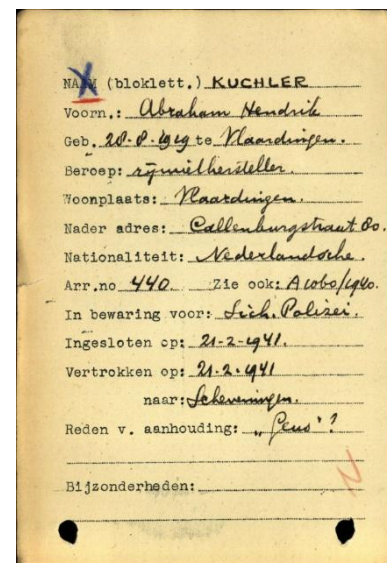 NAAM (bloklett.) KUCHLER
Voorn.: Abraham Hendrik
Geb. 28-8-1919 te Vlaardingen.
Beroep: rijwielhersteller.
Woonplaats: Vlaardingen.
Nader adres: Callenburgstraat 80.
Nationaliteit: Nederlandsche.
Arr.no 440. Zie ook: A 1060/1940.
In bewaring voor: Sich. Polizei.
Ingesloten op: 21-2-1941.
Vertrokken op: 21-2-1941
naar: Scheveningen.
Reden v. aanhouding: „Geus"?
Bijzonderheden: